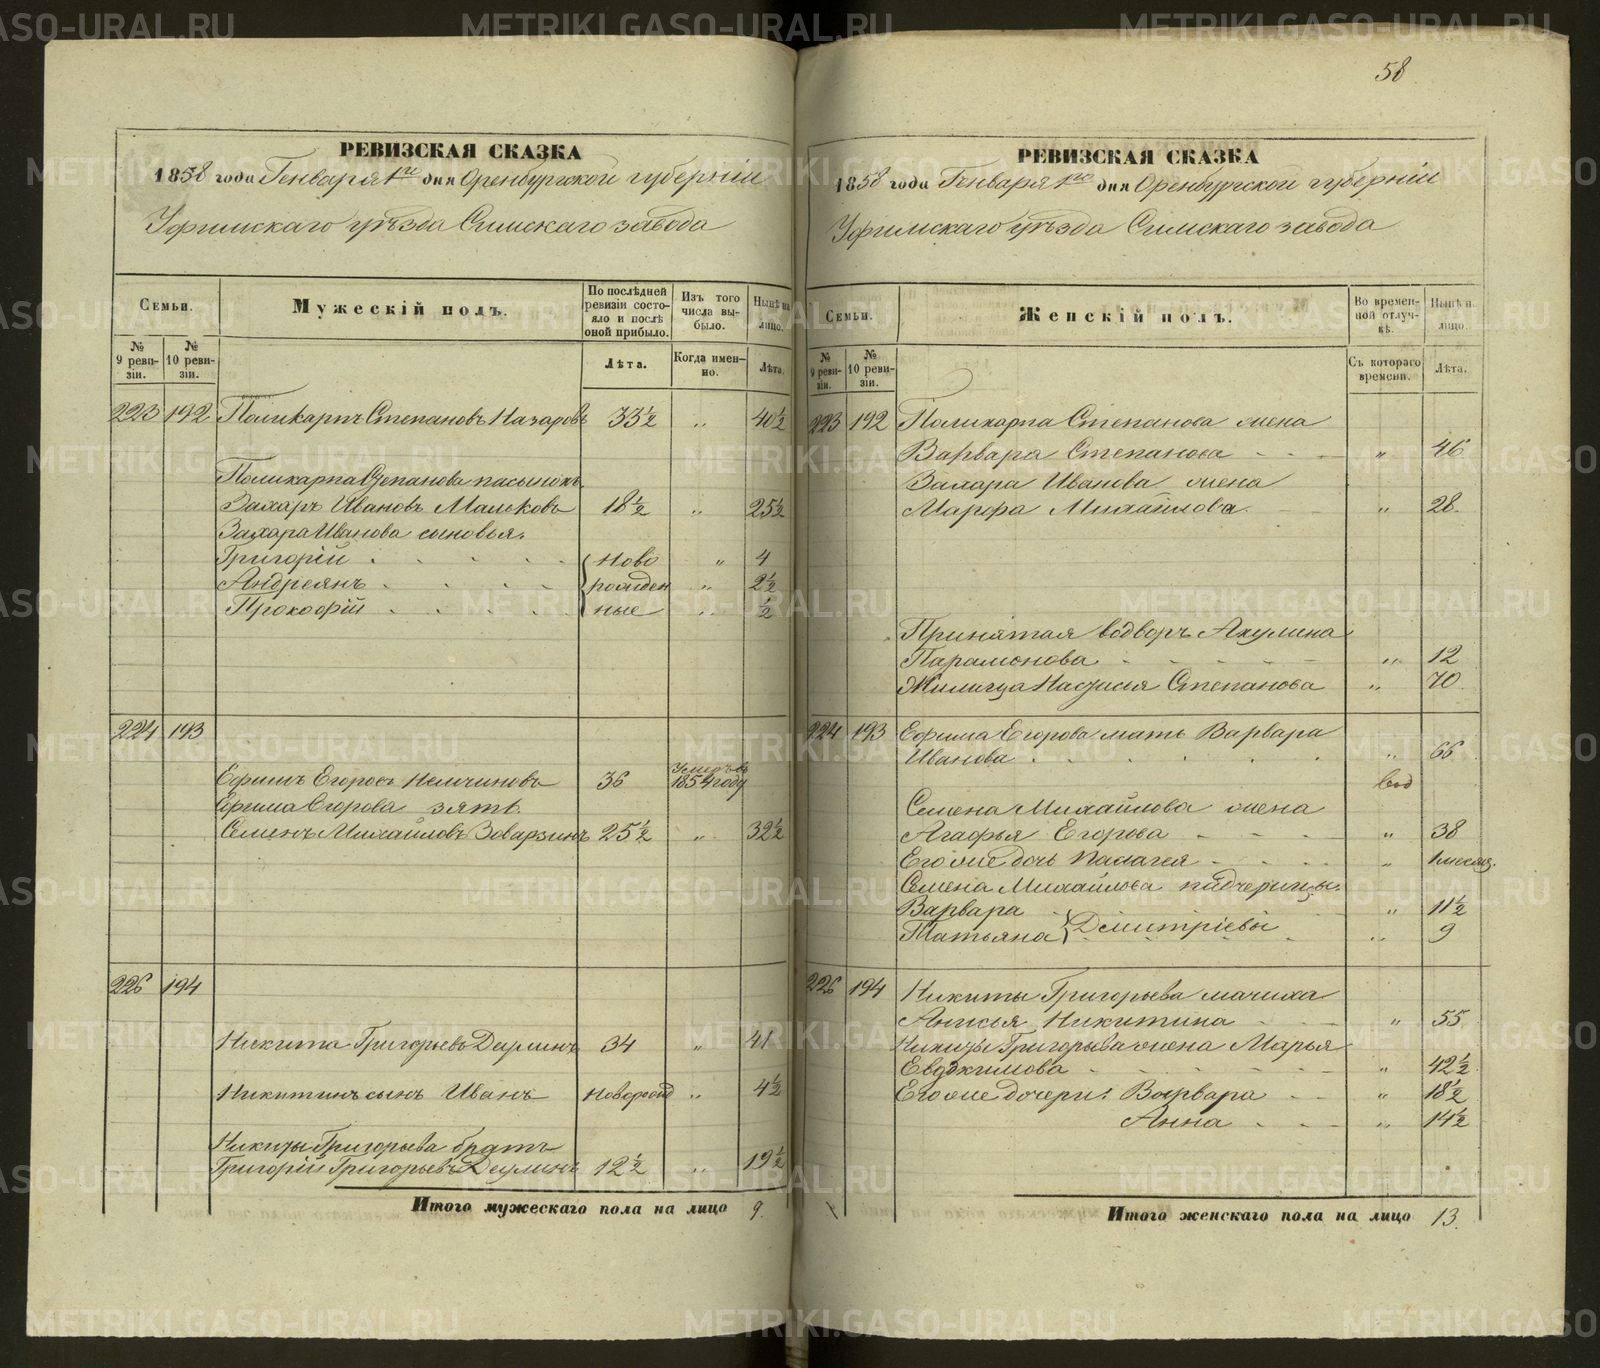 58
РЕВИЗСКАЯ СКАЗКА
1858 года Генваря 1го дня Оренбургской губерніи
Уфимскаго уѣзда Симскаго завода
Семьи.
Мужескій полъ.
По послѣдней ревизіи состояло и послѣ оной прибыло.
Изъ того числа выбыло.
Нынѣ на лицо.
№ 9 ревизіи.
№ 10 ревизіи.
Лѣта.
Когда именно.
Лѣта.
223 192 Поликарпъ Степановъ Назаровъ 33½ „ 40½
Поликарпа Степанова пасынокъ
Захаръ Ивановъ Машковъ 18½ „ 25½
Захара Иванова сыновья.
Григорій ново „ 4
Андреянъ рожден „ 2½
Прокофій ные „ ½
224 193
Ефимъ Егоровъ Немчиновъ 36 Умеръ въ 1854 году
Ефима Егорова зять
Семенъ Михайловъ Заварзинъ 25½ „ 32½
226 194
Никита Григорьевъ Деулинъ 34 „ 41
Никитинъ сынъ Иванъ новорожд „ 4½
Никиты Григорьева братъ
Григорій Григорьевъ Деулинъ 12½ „ 19½
Итого мужескаго пола на лицо 9.
РЕВИЗСКАЯ СКАЗКА
1858 года Генваря 1го дня Оренбургской губерніи
Уфимскаго уѣзда Симскаго завода
Семьи.
Женскій полъ.
Во временной отлучкѣ.
Нынѣ н. лицо.
№ 9 ревизіи.
№ 10 ревизіи.
Съ котораго времени.
Лѣта.
223 192 Поликарпа Степанова жена
Варвара Степанова „ 46
Захара Иванова жена
Марфа Михайлова „ 28.
Принятая водворъ Акулина
Парамонова „ 12
Жилица Настасія Степанова „ 70.
224 193 Ефима Егорова мать Варвара
Иванова „ 66
вод
Семена Михайлова жена
Агафья Егорова „ 38
Егоже дочь Палагея „ 1 месяц.
Семена Михайлова падчерицы.
Варвара „ 11½
Татьяна Дмитріевы „ 9
226 194 Никиты Григорьева мачиха
Анисья Никитина „ 55
Никиты Григорьева жена Марья
Евдокимова „ 42½
Егоже дочери: Варвара „ 18½
Анна „ 14½
Итого женскаго пола на лицо 13.
METRIKI.GASO-URAL.RU